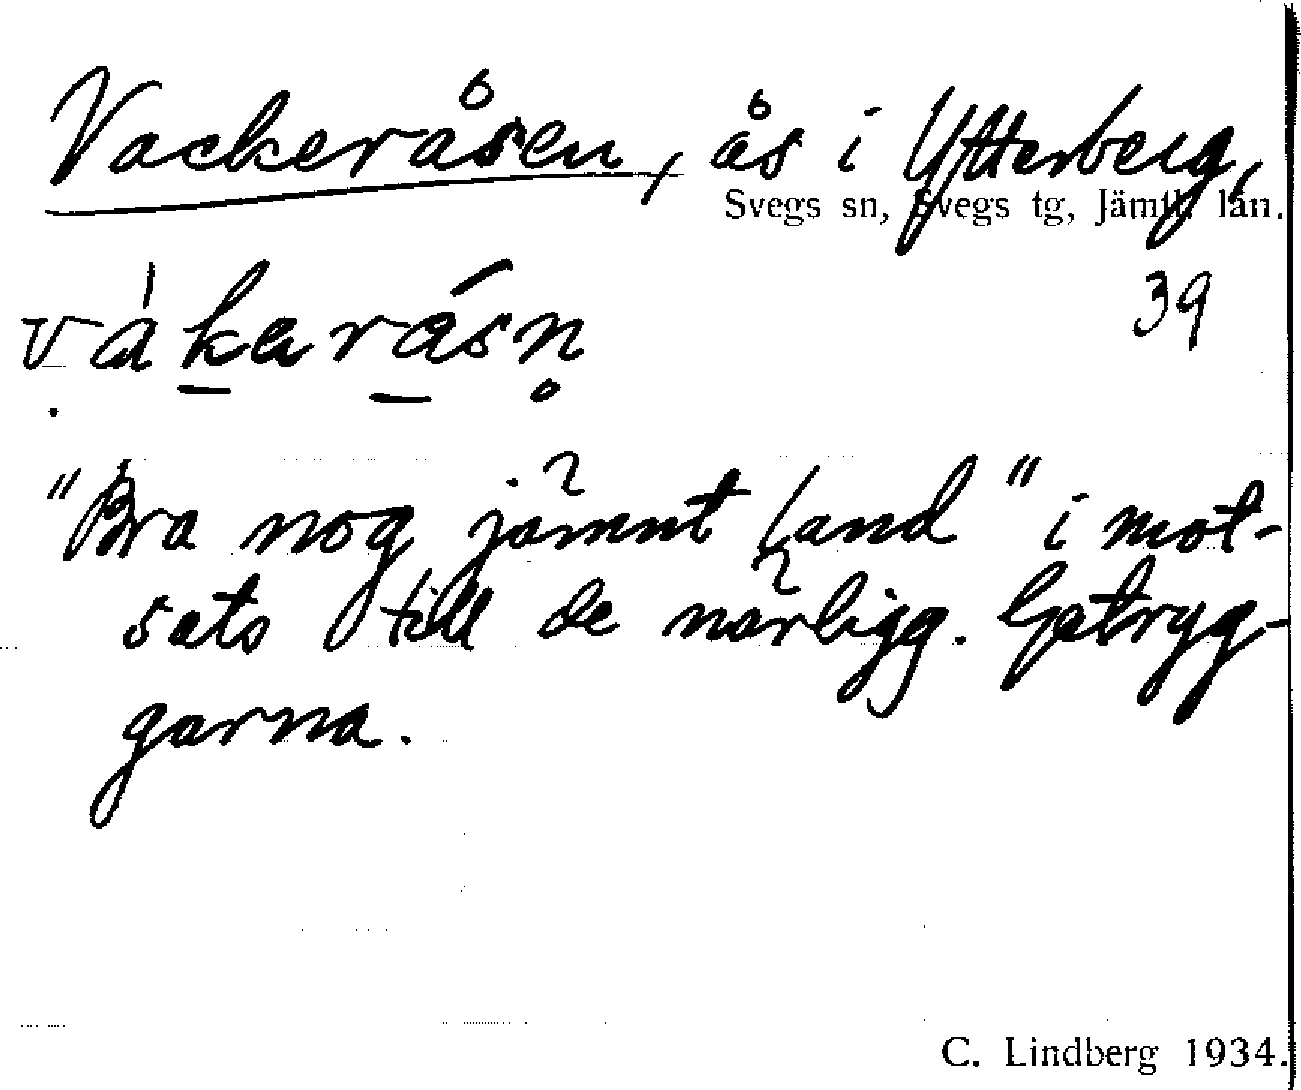 Vackeråsen, ås i Ytterberg,
Svegs sn, Svegs tg, Jämtl. län.
39
"Bra nog jämnt land" i mot-
sats till de närligg. Getryg-
garna.
C. Lindberg 1934.